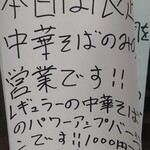 本日は限定
中華そばのみの
営業です!!
レギュラーの中華そば
のパワーアンプバー
ンです!!1000円